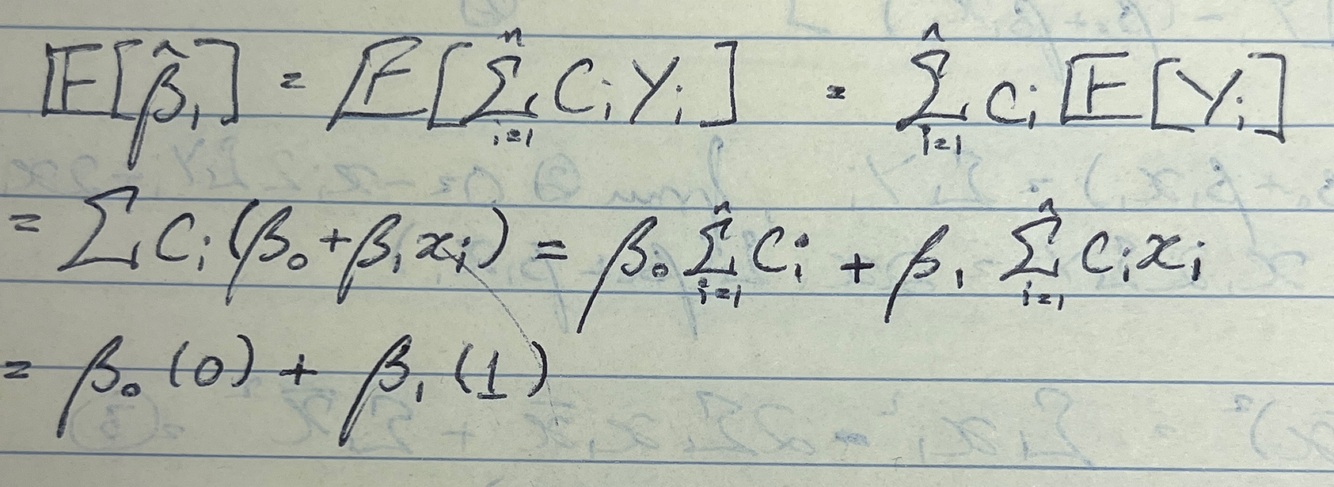 𝔼[β̂₁] = 𝔼[∑ᵢ₌₁ⁿ Cᵢ Yᵢ] = ∑ᵢ₌₁ⁿ Cᵢ 𝔼[Yᵢ]
= ∑ Cᵢ (β₀ + β₁ xᵢ) = β₀ ∑ᵢ₌₁ⁿ Cᵢ + β₁ ∑ᵢ₌₁ⁿ Cᵢ xᵢ
= β₀ (0) + β₁ (1)